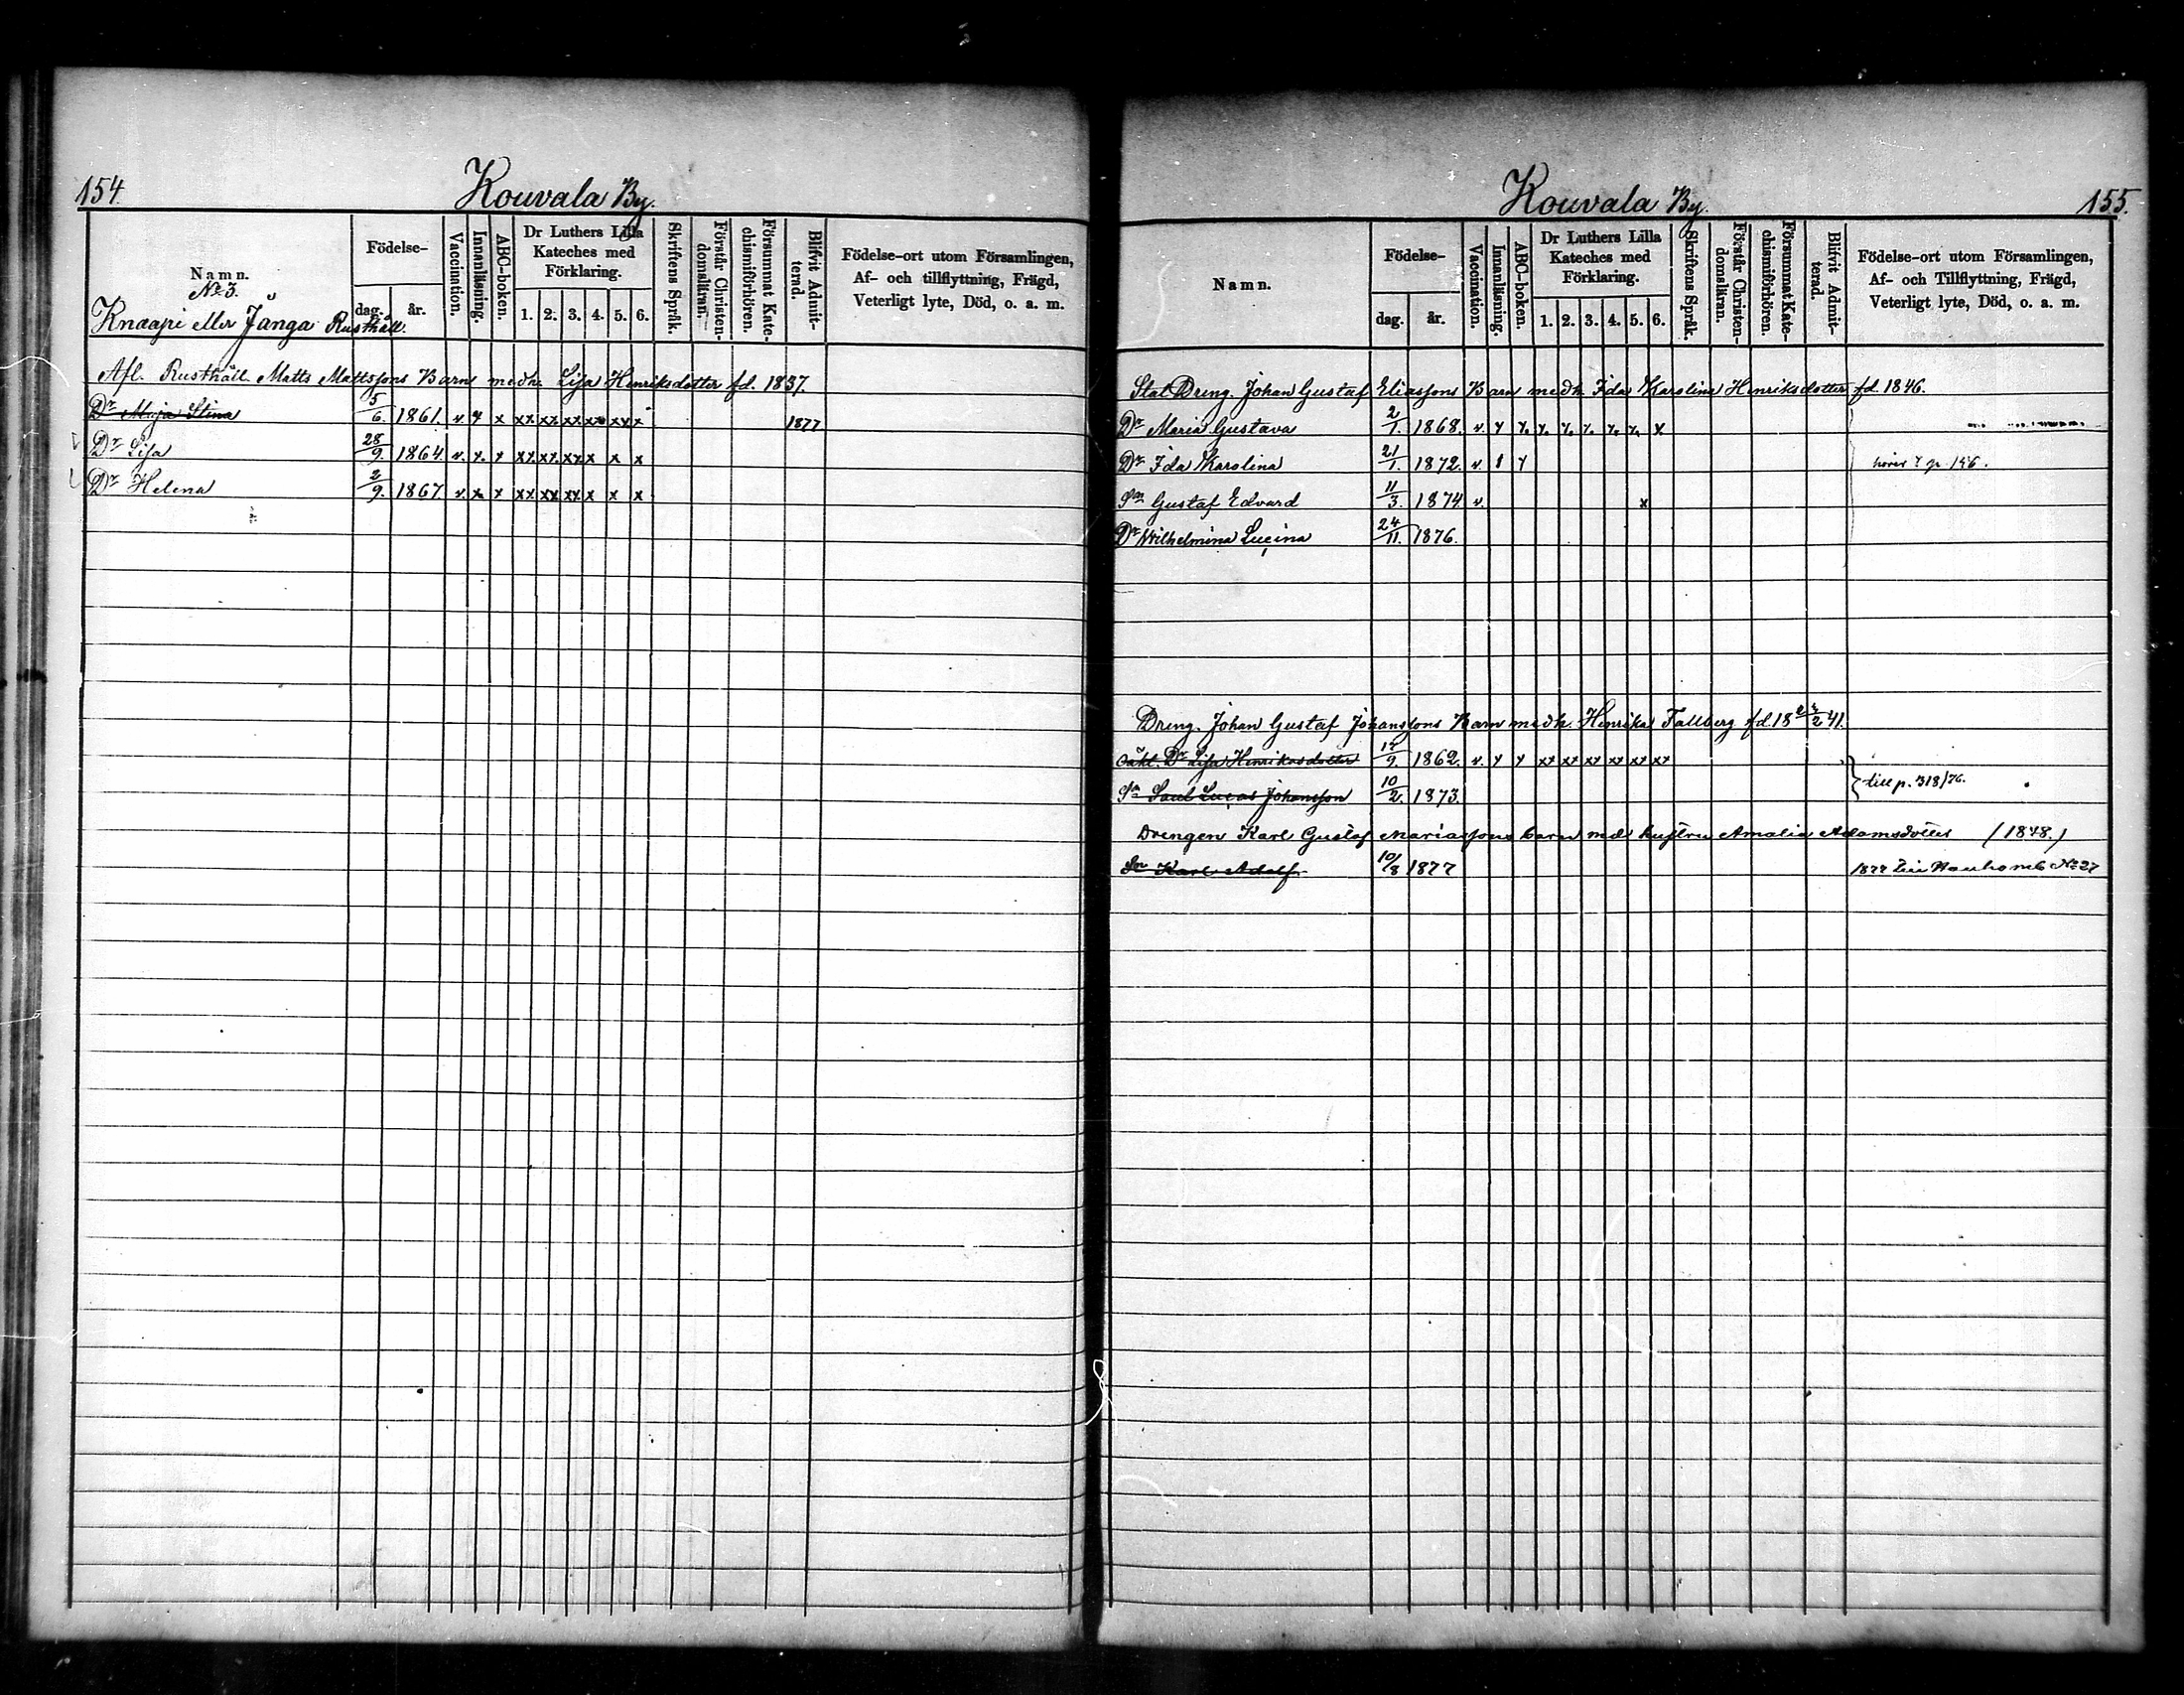 154.
Kouvala By.
Namn.
Nº 3.
Knaapi eller Jånga Rusthåll.
Födelse-
dag. år.
Vaccination.
Innanläsning.
ABC-boken.
Dr Luthers Lilla Kateches med Förklaring.
1. 2. 3. 4. 5. 6.
Skriftens Språk.
Förstår Christendomsläran.
Försummat Katechismiförhören.
Blifvit Admitterad.
Födelse-ort utom Församlingen,
Af- och tillflyttning, Frägd,
Veterligt lyte, Död, o. a. m.
Afl. Rusthåll. Matts Mattssons Barn medh. Lisa Henriksdotter fd. 1837.
Dr Maja Stina 5/6. 1861. v. x x xx xx xx xx xx x 1877
Dr Lisa 28/9. 1864. v. x. x xx xx xx x x x
Dr Helena 2/9. 1867 v. x x xx xx xx x x x
Kouvala By.
155.
Namn.
Födelse-
dag. år.
Vaccination.
Innanläsning.
ABC-boken.
Dr Luthers Lilla Kateches med Förklaring.
1. 2. 3. 4. 5. 6.
Skriftens Språk.
Förstår Christendomsläran.
Försummat Katechismiförhören.
Blifvit Admitterad.
Födelse-ort utom Församlingen,
Af- och Tillflyttning, Frägd,
Veterligt lyte, Död, o. a. m.
Stat Dreng. Johan Gustaf Eliassons Barn medh. Ida Karolina Henriksdotter fd. 1846.
Dr Maria Gustava 2/1. 1868. v. x x. x. x. x. x. x. x
Dr Ida Karolina 21/1. 1872. v. 1 x p. 156.
Sn Gustaf Edvard 11/3. 1874 v. x
Dr Wilhelmina Lucina 24/11. 1876.
Dreng. Johan Gustaf Johanssons Barn medh. Henrika Tallberg fd. 18 /2 41.
oäkt. Dr Lisa Henriksdotter 17/9. 1862. v. x x xx xx xx xx xx xx
till p. 318/76.
Sn Saul Lucas Johansson 10/2. 1873.
Drengen Karl Gustaf Mariassons barn med hustru Amalia Adamsdotter (1848.)
Sn Karl Adolf 10/8 1877 1877 Nº 27